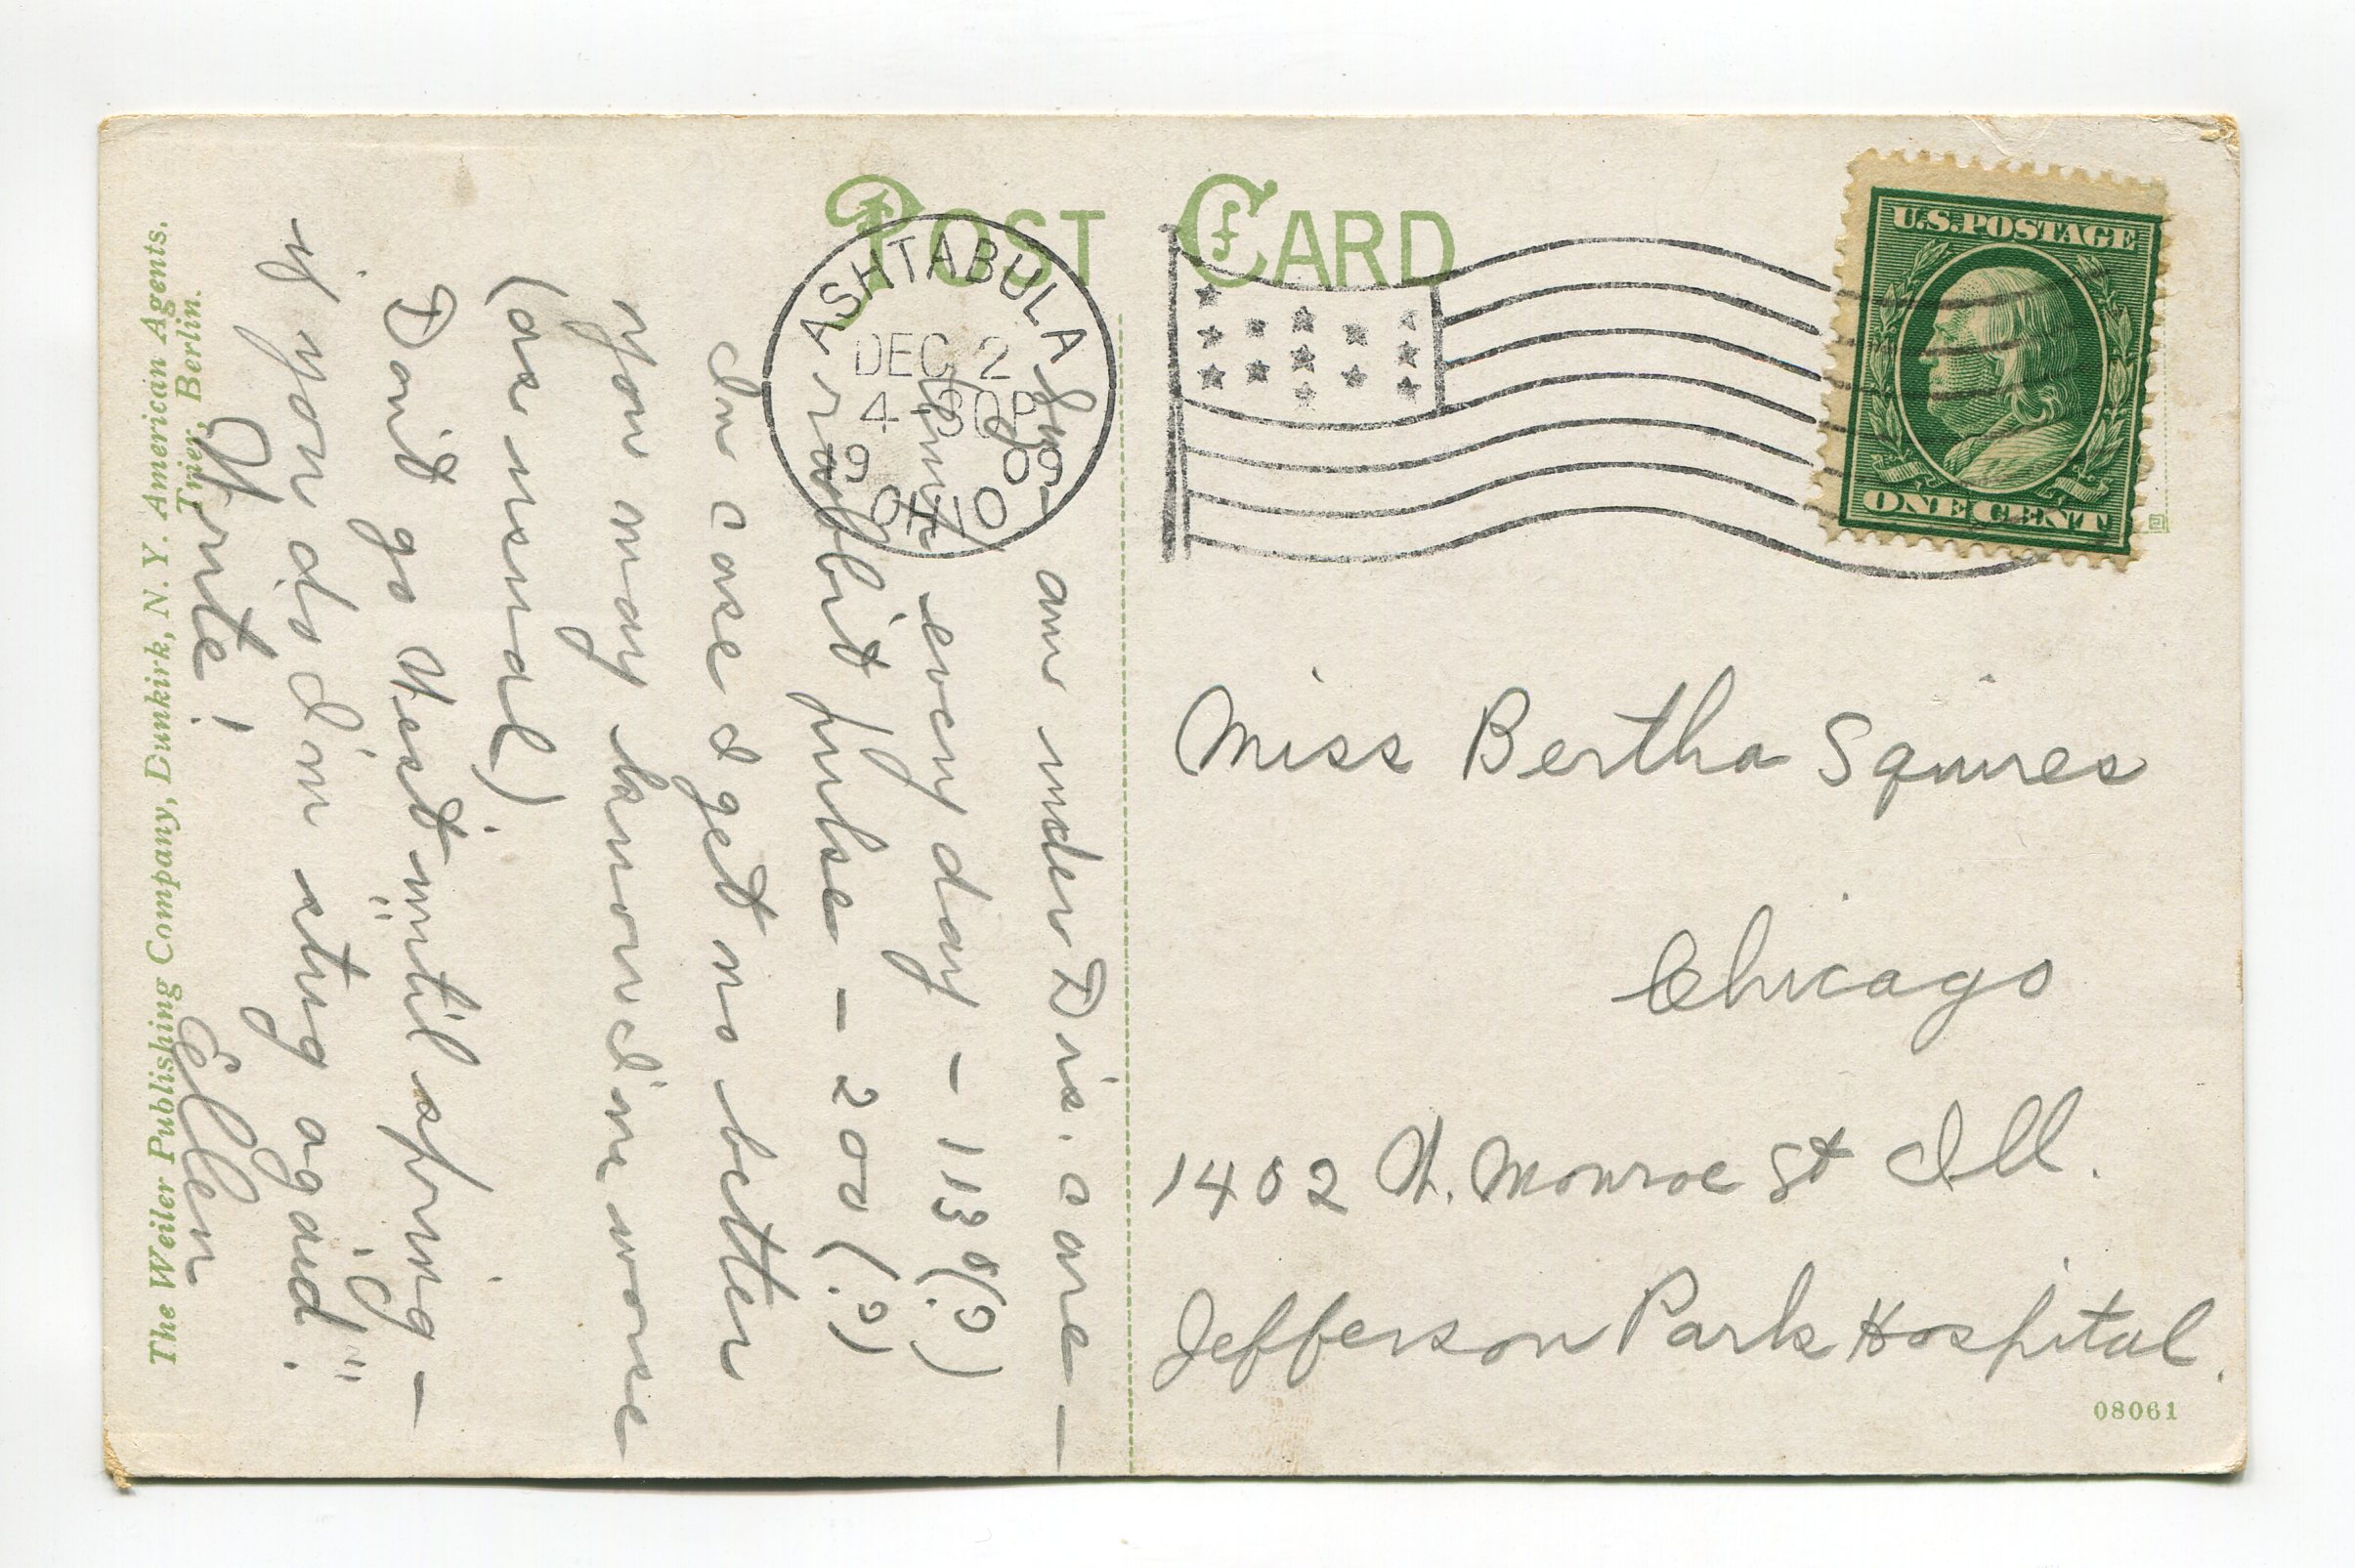 POST CARD
U.S. POSTAGE
ONE CENT
ASHTABULA
DEC 2
4-30P
1909
OHIO
am under Drs. care —
temp. every day — 113°(?)
rabbit pulse — 200 (?)
In case I get no better
you may know I'm worse
(as usual)
Don't go West until spring —
if you do I'm stug again".
Write! Ellen
Miss Bertha Squires
Chicago
1402 W. Monroe St Ill.
Jefferson Park Hospital.
08061
The Weiler Publishing Company, Dunkirk, N. Y. American Agents.
Trier, Berlin.